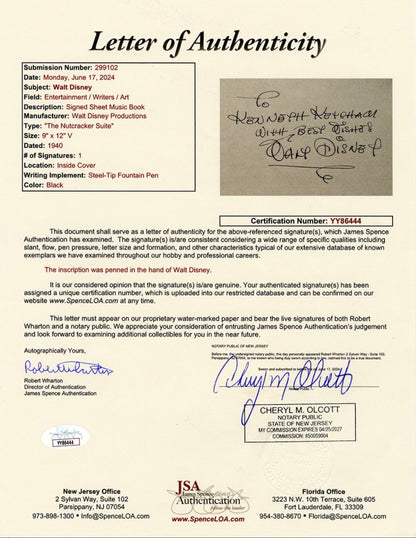 Letter of Authenticity
Submission Number: 299102
Date: Monday, June 17, 2024
Subject: Walt Disney
Field: Entertainment / Writers / Art
Description: Signed Sheet Music Book
Manufacturer: Walt Disney Productions
Type: "The Nutcracker Suite"
Size: 9" x 12" V
Dated: 1940
# of Signatures: 1
Location: Inside Cover
Writing Implement: Steel-Tip Fountain Pen
Color: Black
To
Kenneth Ketcham
With Best Wishes
Walt Disney
Certification Number: YY86444
This document shall serve as a letter of authenticity for the above-referenced signature(s), which James Spence
Authentication has examined. The signature(s) is/are consistent considering a wide range of specific qualities including
slant, flow, pen pressure, letter size and formation, and other characteristics typical of our extensive database of known
exemplars we have examined throughout our hobby and professional careers.
The inscription was penned in the hand of Walt Disney.
It is our considered opinion that the signature(s) is/are genuine. Your authenticated signature(s) has been
assigned a unique certification number, which is uploaded into our restricted database and can be confirmed on our
website www.SpenceLOA.com at any time.
This letter must appear on our proprietary water-marked paper and bear the live signatures of both Robert
Wharton and a notary public. We appreciate your consideration of entrusting James Spence Authentication's judgement
and look forward to examining additional collectibles for you in the near future.
Autographically Yours,
Robert Wharton
Robert Wharton
Director of Authentication
James Spence Authentication
YY86444
NOTARY PUBLIC OF NEW JERSEY
Cheryl M Olcott
CHERYL M. OLCOTT
NOTARY PUBLIC
STATE OF NEW JERSEY
MY COMMISSION EXPIRES 04/25/2027
COMMISSION: #50059004
New Jersey Office
2 Sylvan Way, Suite 102
Parsippany, NJ 07054
973-898-1300 • Info@SpenceLOA.com
JSA
James Spence
Authentication
www.SpenceLOA.com
Florida Office
3223 N.W. 10th Terrace, Suite 605
Fort Lauderdale, FL 33309
954-380-8670 • Florida@SpenceLOA.com